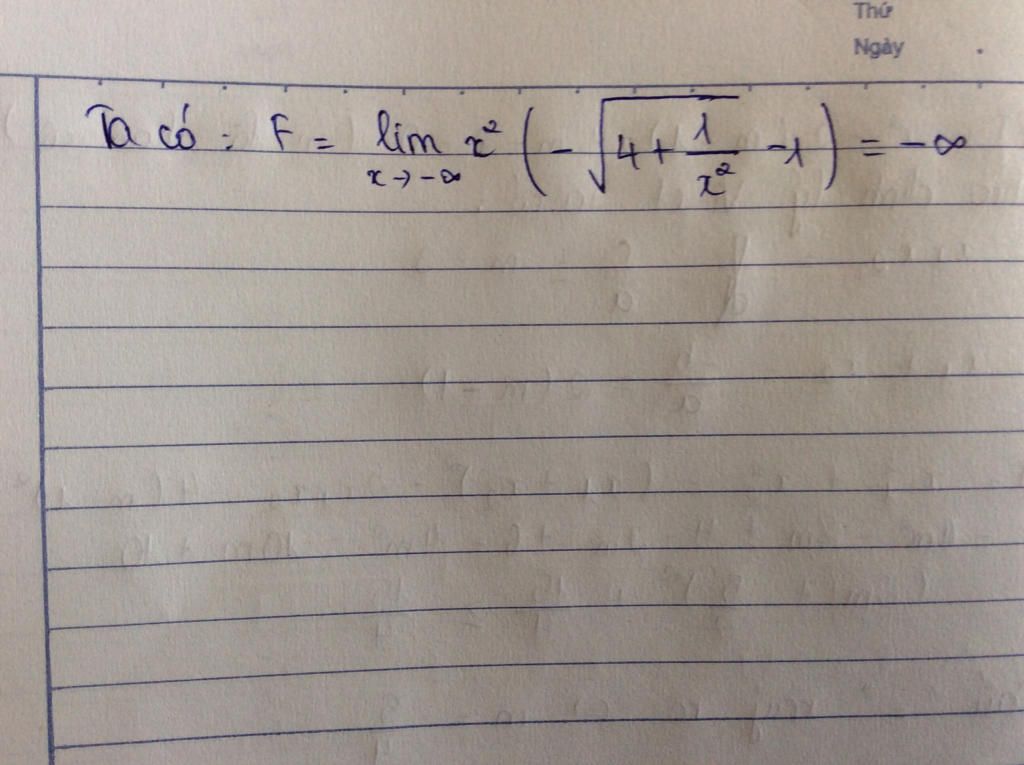 Thứ
Ngày
Ta có : F = lim x² ( - √(4 + 1/x²) - 1 ) = - ∞
x → - ∞